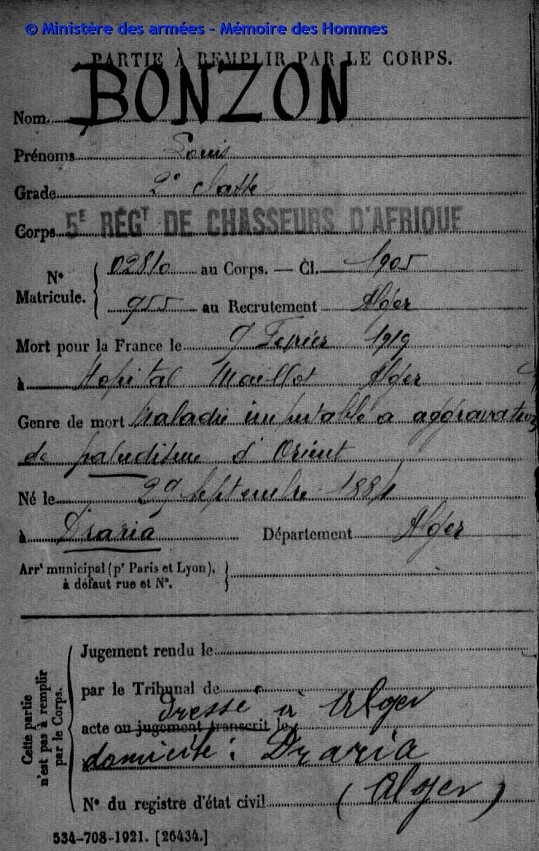 © Ministère des armées - Mémoire des Hommes
PARTIE À REMPLIR PAR LE CORPS.
Nom BONZON
Prénoms Louis
Grade 2e classe
Corps 5E RÉGT DE CHASSEURS D'AFRIQUE
N° Matricule. { 02810 au Corps. — Cl. 1905
955 au Recrutement Alger
Mort pour la France le 9 Février 1919
à Hopital Maillot Alger
Genre de mort Maladie imputable a aggravation
de paludisme d'Orient
Né le 29 Septembre 1884
à Draria Département Alger
Arrt municipal (pr Paris et Lyon), à défaut rue et N°. }
Cette partie n'est pas à remplir par le Corps.
Jugement rendu le
par le Tribunal de
acte ou jugement transcrit le dressé à Alger
domicile : Draria
(Alger)
N° du registre d'état civil
534-708-1921. [26434.]